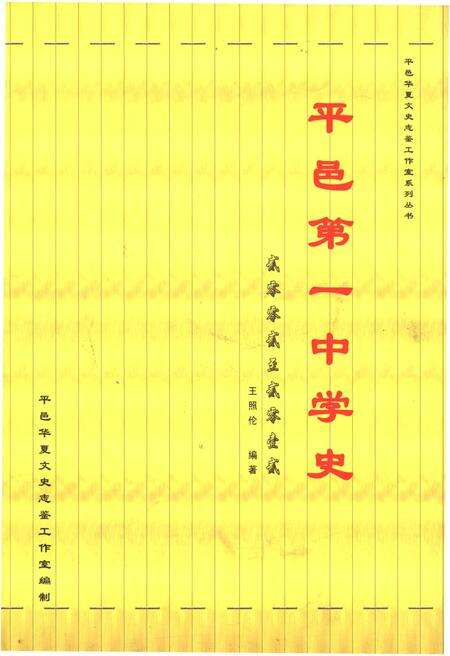 平邑华夏文史志鉴工作室系列丛书
平邑第一中学史
贰零零贰至贰零壹贰
王照伦 编著
平邑华夏文史志鉴工作室编制